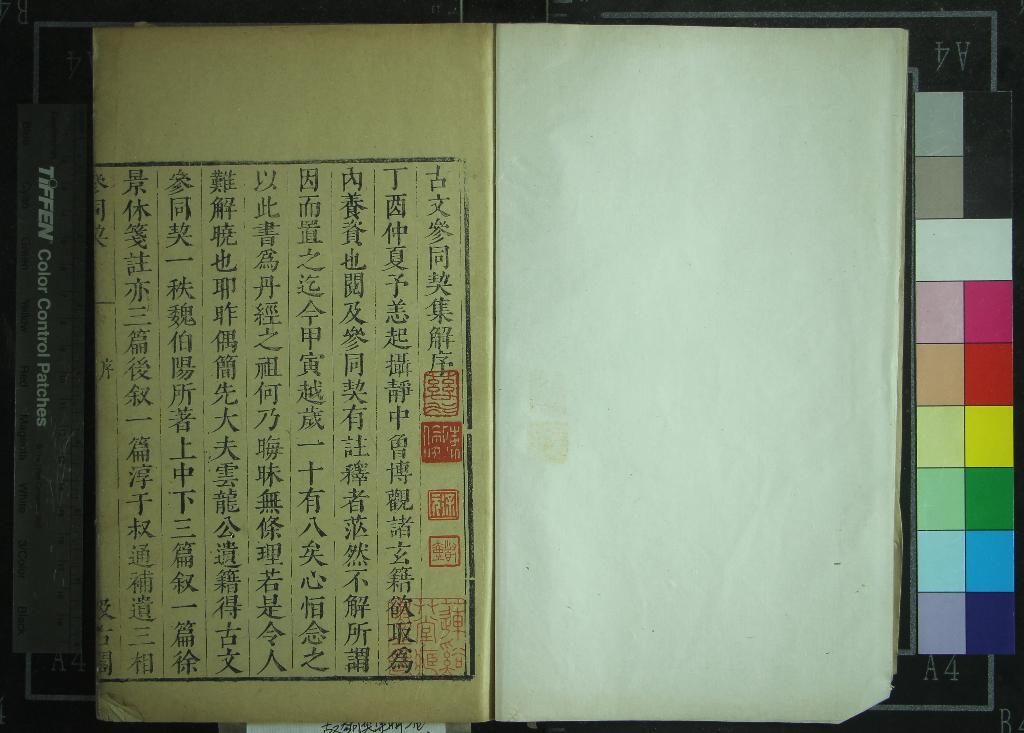 古文參同契集解序
丁酉仲夏予恙起攝靜中曾博觀諸玄籍欲取爲
內養資也閱及參同契有註釋者茫然不解所謂
因而置之迄今甲寅越歲一十有八矣心怕念之
以此書爲丹經之祖何乃晦昧無條理若是令人
難解曉也耶昨偶簡先大夫雲龍公遺籍得古文
參同契一秩魏伯陽所著上中下三篇叙一篇徐
景休箋註亦三篇後叙一篇淳于叔通補遺三相
參同契
序
汲古閣
TIFFEN Color Control Patches
A4
A4
A4